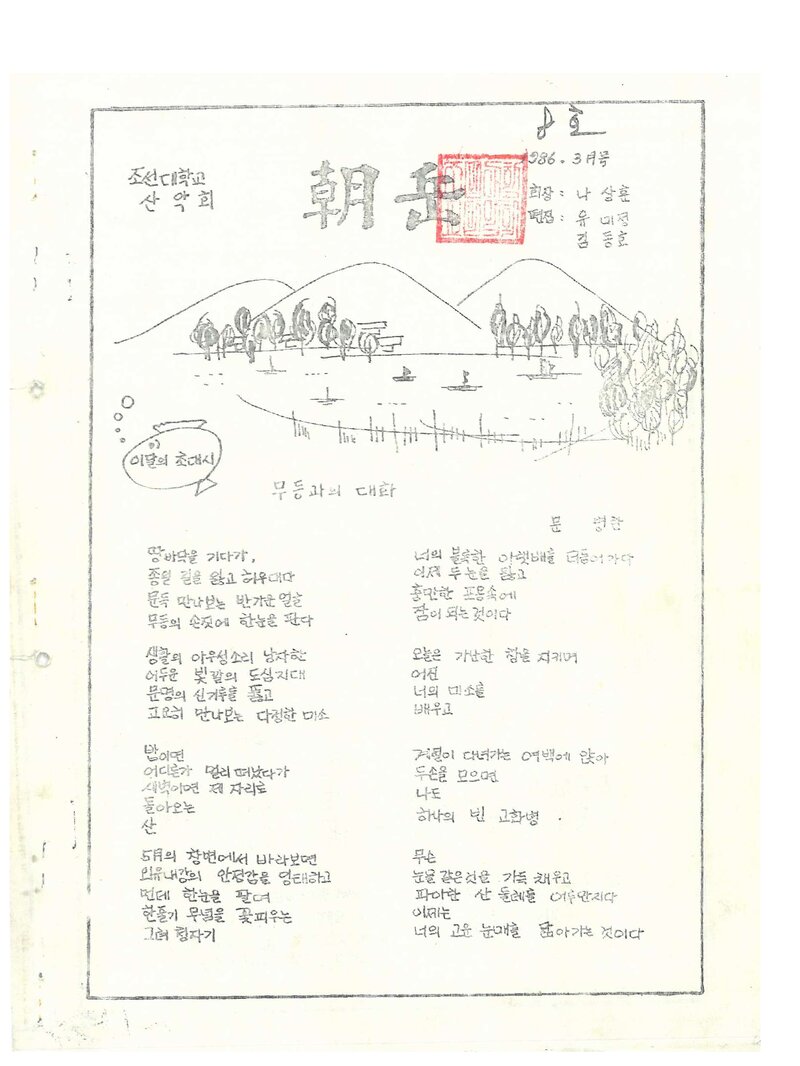 8호
1986. 3월호
조선대학교
산악회
朝岳
회장 : 나 상훈
편집 : 유 미정
김 동호
이달의 초대시
무등과의 대화
문 병란
땅바닥을 기다가,
종일 길을 잃고 허우대다
문득 만나보는 반가운 얼굴
무등의 손짓에 한눈을 판다
생활의 아우성소리 낭자한
어두운 빛깔의 도심지대
문명의 신기루를 뚫고
고요히 만나보는 다정한 미소
밤이면
어디론가 멀리 떠났다가
새벽이면 제 자리로
돌아오는
산
5月의 창변에서 바라보면
외유내강의 안정감을 잉태하고
먼데 한눈을 팔며
한줄기 무념을 꽃피우는
그려 청자기
너의 불룩한 아랫배를 더듬어가다
어제 두 눈을 잃고
충만한 포옹속에
잠이 되는 것이다
오늘은 가난한 창을 지키며
어진
너의 미소를
배우고
계절이 다녀가는 여백에 앉아
두손을 모으면
나도
하사의 빈 고화병
무슨
눈물 같은것을 가득 채우고
파아란 산 둘레를 어루만지다
이제는
너의 고운 눈매를 닮아가는 것이다